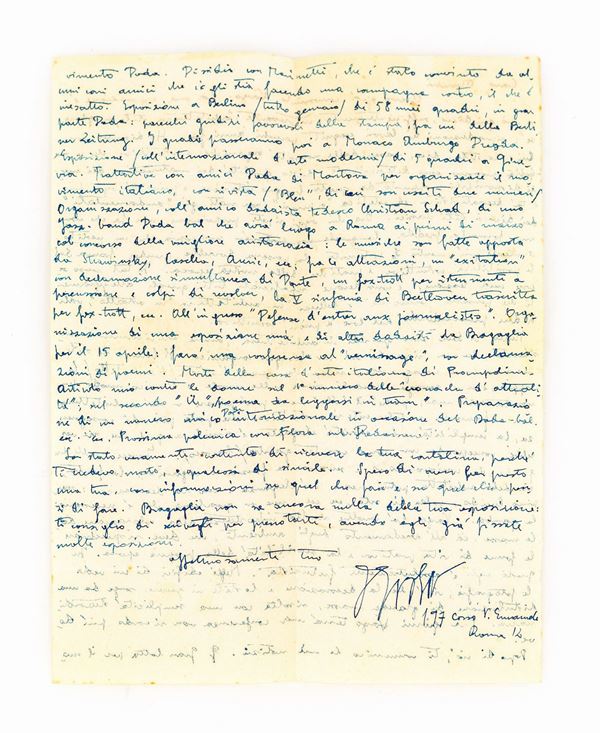 vimento Dada. Dissidio con Marinetti, che è stato convinto da al
cuni cari amici che io gli stia facendo una campagna contro, il che è
inesatto. Esposizione a Berlino /tutto gennaio/ di 58 miei quadri, in gran
parte Dada: parecchi giudizi favorevoli della stampa, fra cui della Berli
ner Zeitung. I quadri passeranno poi a Monaco Amburgo Dresda.
Esposizione /coll'internazionale d'arte moderna/ di 5 quadri a Gine
vra. Trattative con amici Dada di Mantova per organizzare il mo
vimento italiano, con rivista /"Bleu", di cui son usciti due numeri/
Organizzazione, coll'amico dadaista tedesco Christian Schad, di uno
Jazz-band Dada bal che avrà luogo a Roma ai primi di marzo
col concorso della migliore aristocrazia: le musiche son fatte apposta
da Strawinsky, Casella, Auric, ecc. fra le attrazioni, un "exitation"
con declamazione simultanea di Dante, un fox-trott per istrumenti a
percussione e colpi di revolver, la V sinfonia di Beethoven trascritta
per fox-trott, ecc. All'ingresso "Défense d'entrer aux journalistes". Orga
nizzazione di una esposizione mia e di altri dadaisti da Bragaglia
per il 15 aprile: farò una conferenza al "vernissage", con declama
zioni di poemi. Morte della casa d'arte italiana di Prampolini.
Articolo mio contro le donne sul 1° numero delle "cronache d'attuali
tà", sul secondo "poema da leggersi in tram". Preparazio
ne di un numero unico Dada internazionale in occasione del Dada-bal.
ecc. ecc. Prossima polemica con Flora sul Dadaismo.
Son stato veramente contento di ricevere la tua cartolina, perchè
ti credevo morto, o qualcosa di simile. Spero di aver fra presto
una tua, con informazioni su quel che fai e su quel che pen
si di fare. Bragaglia non sa ancora nulla della tua esposizione:
ti consiglio di scrivergli per prenotarti, avendo egli già fissate
molte esposizioni.
affettuosamente tuo
197 Corso V. Emanuele
Roma